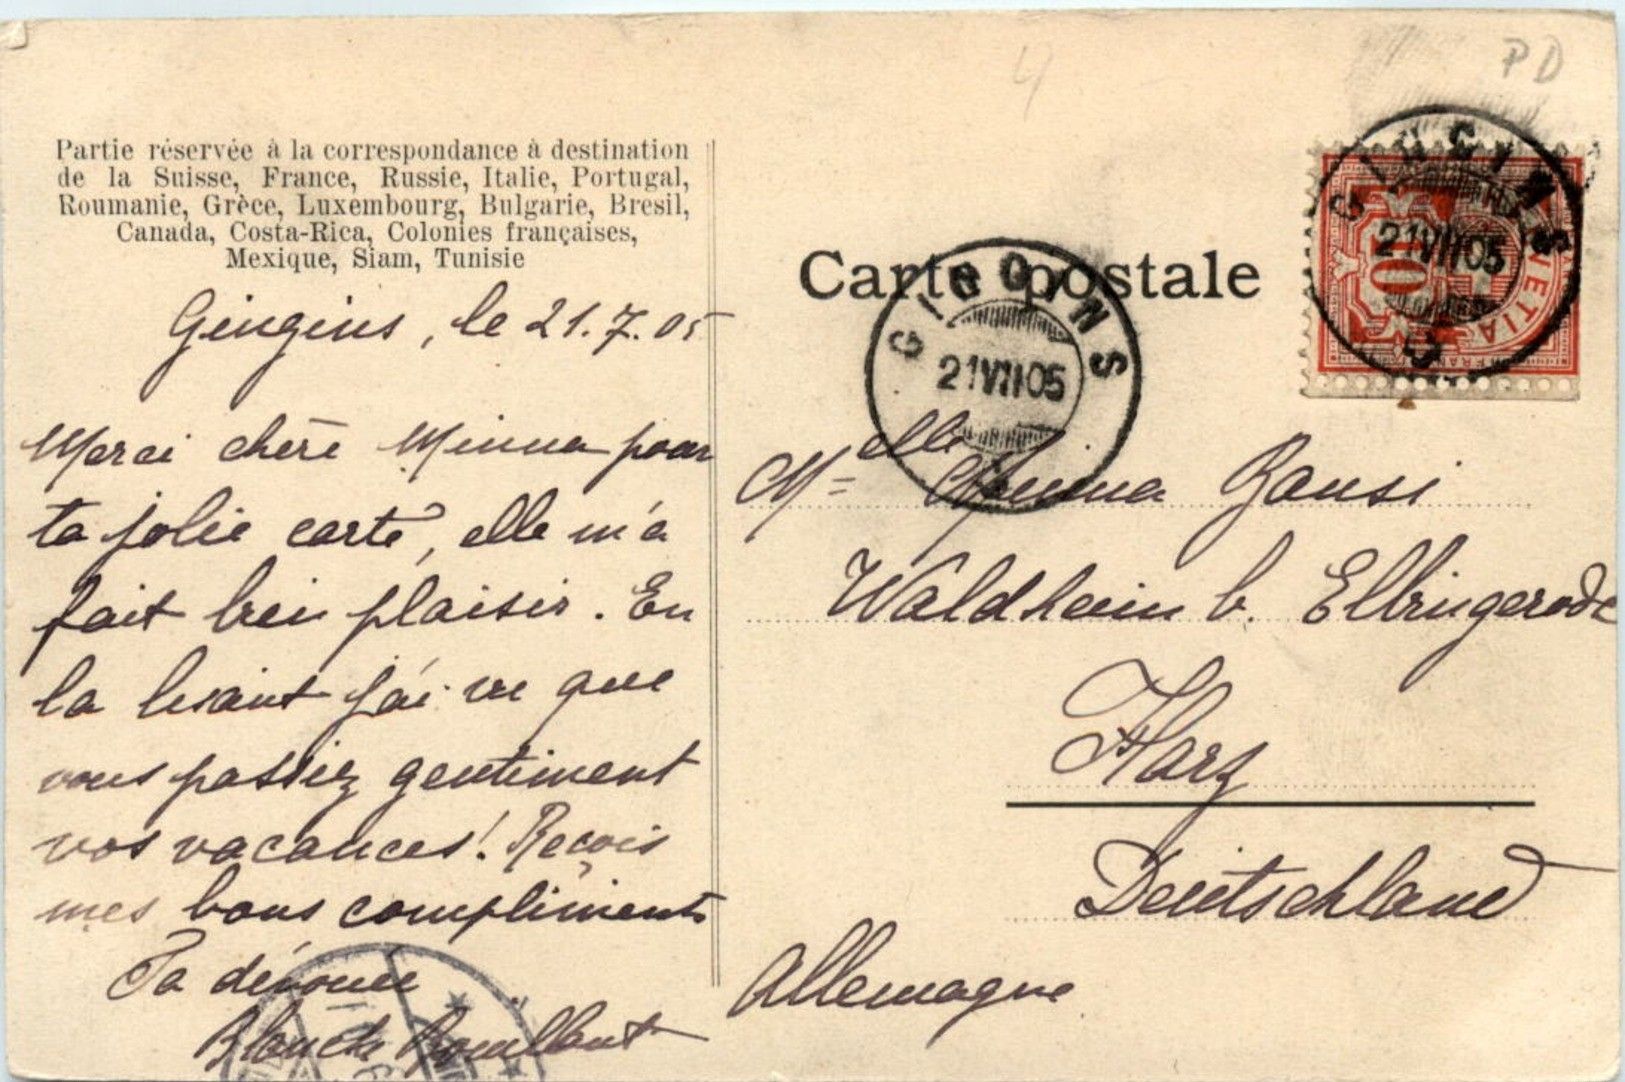 PD
4
Partie réservée à la correspondance à destination
de la Suisse, France, Russie, Italie, Portugal,
Roumanie, Grèce, Luxembourg, Bulgarie, Bresil,
Canada, Costa-Rica, Colonies françaises,
Mexique, Siam, Tunisie
Gingins, le 21.7.05
Merci chère Minna pour
ta jolie carte, elle m'a
fait bien plaisir. En
la lisant j'ai vu que
vous passiez gentiment
vos vacances! Reçois
mes bons compliments
Ta dévouée
Blanche
Carte postale
GINGINS
21 VII 05
GINGINS
21 VII 05
10
Melle Minna Bansi
Waldheim b. Elbingerode
Harz
Deutschland
Allemagne